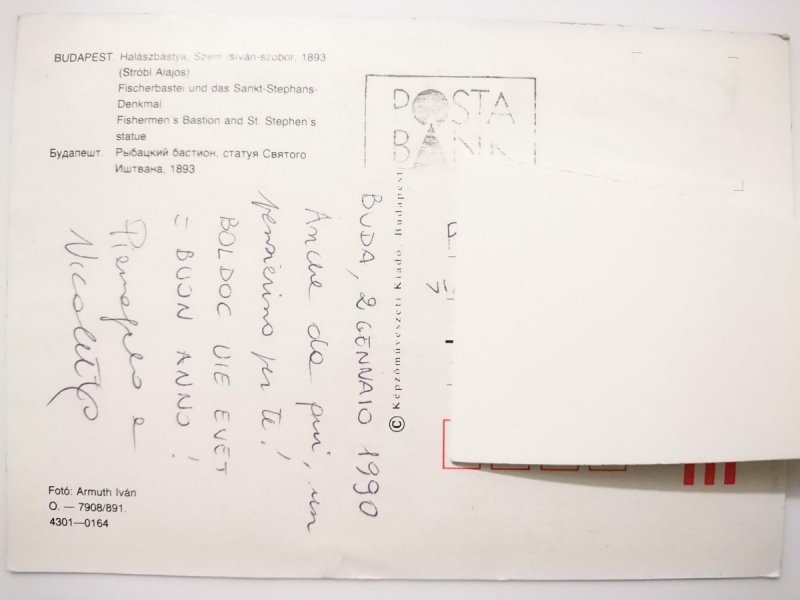 BUDAPEST. Halászbástya, Szent István-szobor, 1893
(Stróbl Alajos)
Fischerbastei und das Sankt-Stephans-
Denkmal
Fishermen's Bastion and St. Stephen's
statue
Будапешт. Рыбацкий бастион, статуя Святого
Иштвана, 1893
POSTA
BANK
BUDA, 2 GENNAIO 1990
Anche da qui, un
pensierino per te!
BOLDOG UJE EVET
= BUON ANNO!
e
Nicoletta
© Képzőművészeti Kiadó, Budapest
Fotó: Armuth Iván
O. — 7908/891.
4301—0164